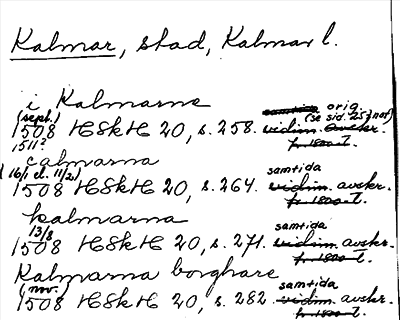 Kalmar, stad, Kalmar l.
i Kalmarna
(sept.) samtida orig.
1508 HSkH 20, s. 258. vidim. avskr. (se sid. 257 not)
1511? fr. 1800-t.
calmarna
(16/1 el. 11/2) samtida
1508 HSkH 20, s. 264. vidim. avskr.
fr. 1800-t.
kalmarna
13/8 samtida
1508 HSkH 20, s. 271. vidim. avskr.
fr. 1800-t.
Kalmarna borghare
(nov.) samtida
1508 HSkH 20, s. 282 vidim. avskr.
fr. 1800-t.